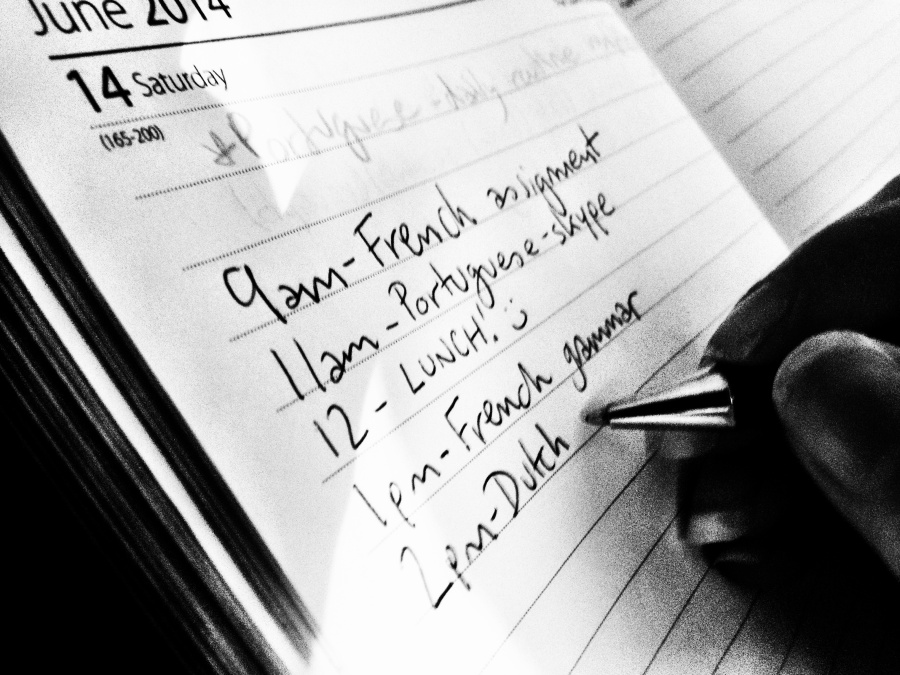 June 2014
14 Saturday
(165-200)
*Portuguese - daily routine
9am - French assigment
11am - Portuguese - skype
12 - LUNCH! :)
1pm - French gammar
2pm - Dutch